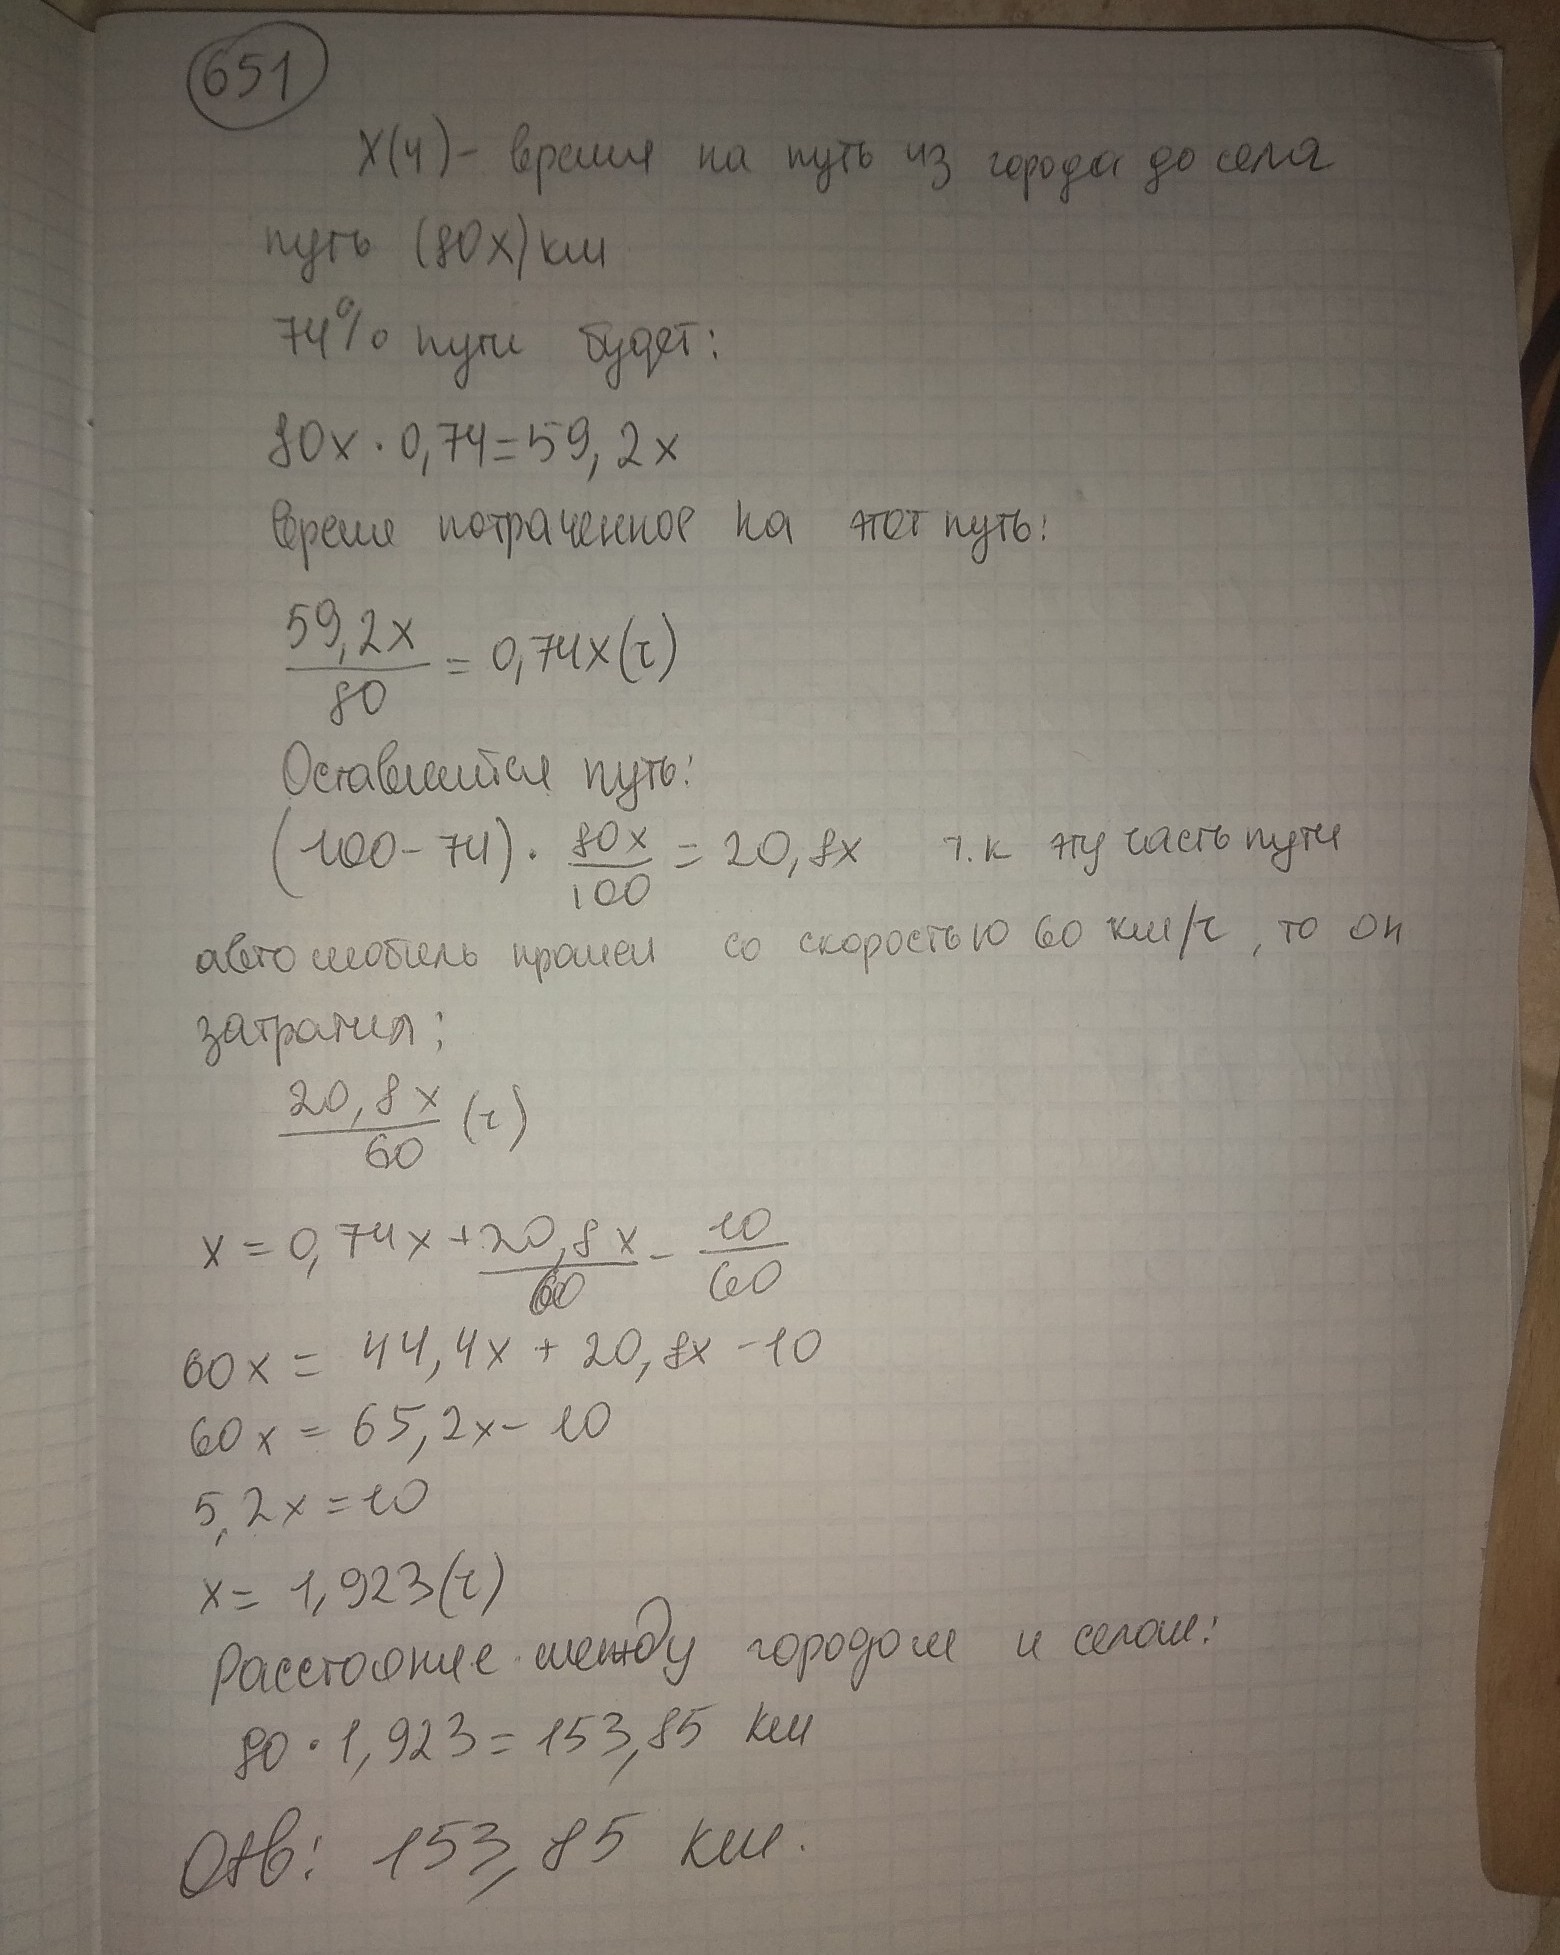 651
X(ч) - время на путь из города до села
путь (80x) км
74% пути будет:
80x · 0,74 = 59,2x
время потраченное на этот путь:
59,2x/80 = 0,74x (ч)
Оставшийся путь:
(100 - 74) · 80x/100 = 20,8x т.к эту часть пути
автомобиль прошел со скоростью 60 км/ч, то он
затратил:
20,8x/60 (ч)
x = 0,74x + 20,8x/60 - 10/60
60x = 44,4x + 20,8x - 10
60x = 65,2x - 10
5,2x = 10
x = 1,923 (ч)
Расстояние между городом и селом:
80 · 1,923 = 153,85 км
Отв: 153,85 км.